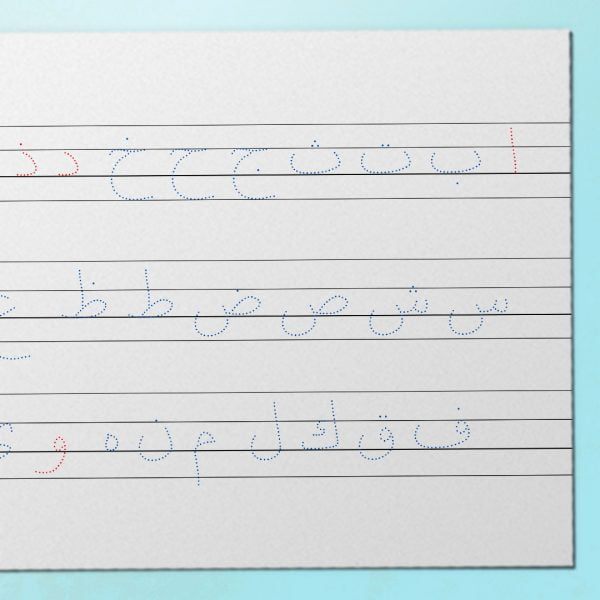 ا ب ت ث ج ح خ د ذ
س ش ص ض ط ظ
ف ق ك ل م ن ه و